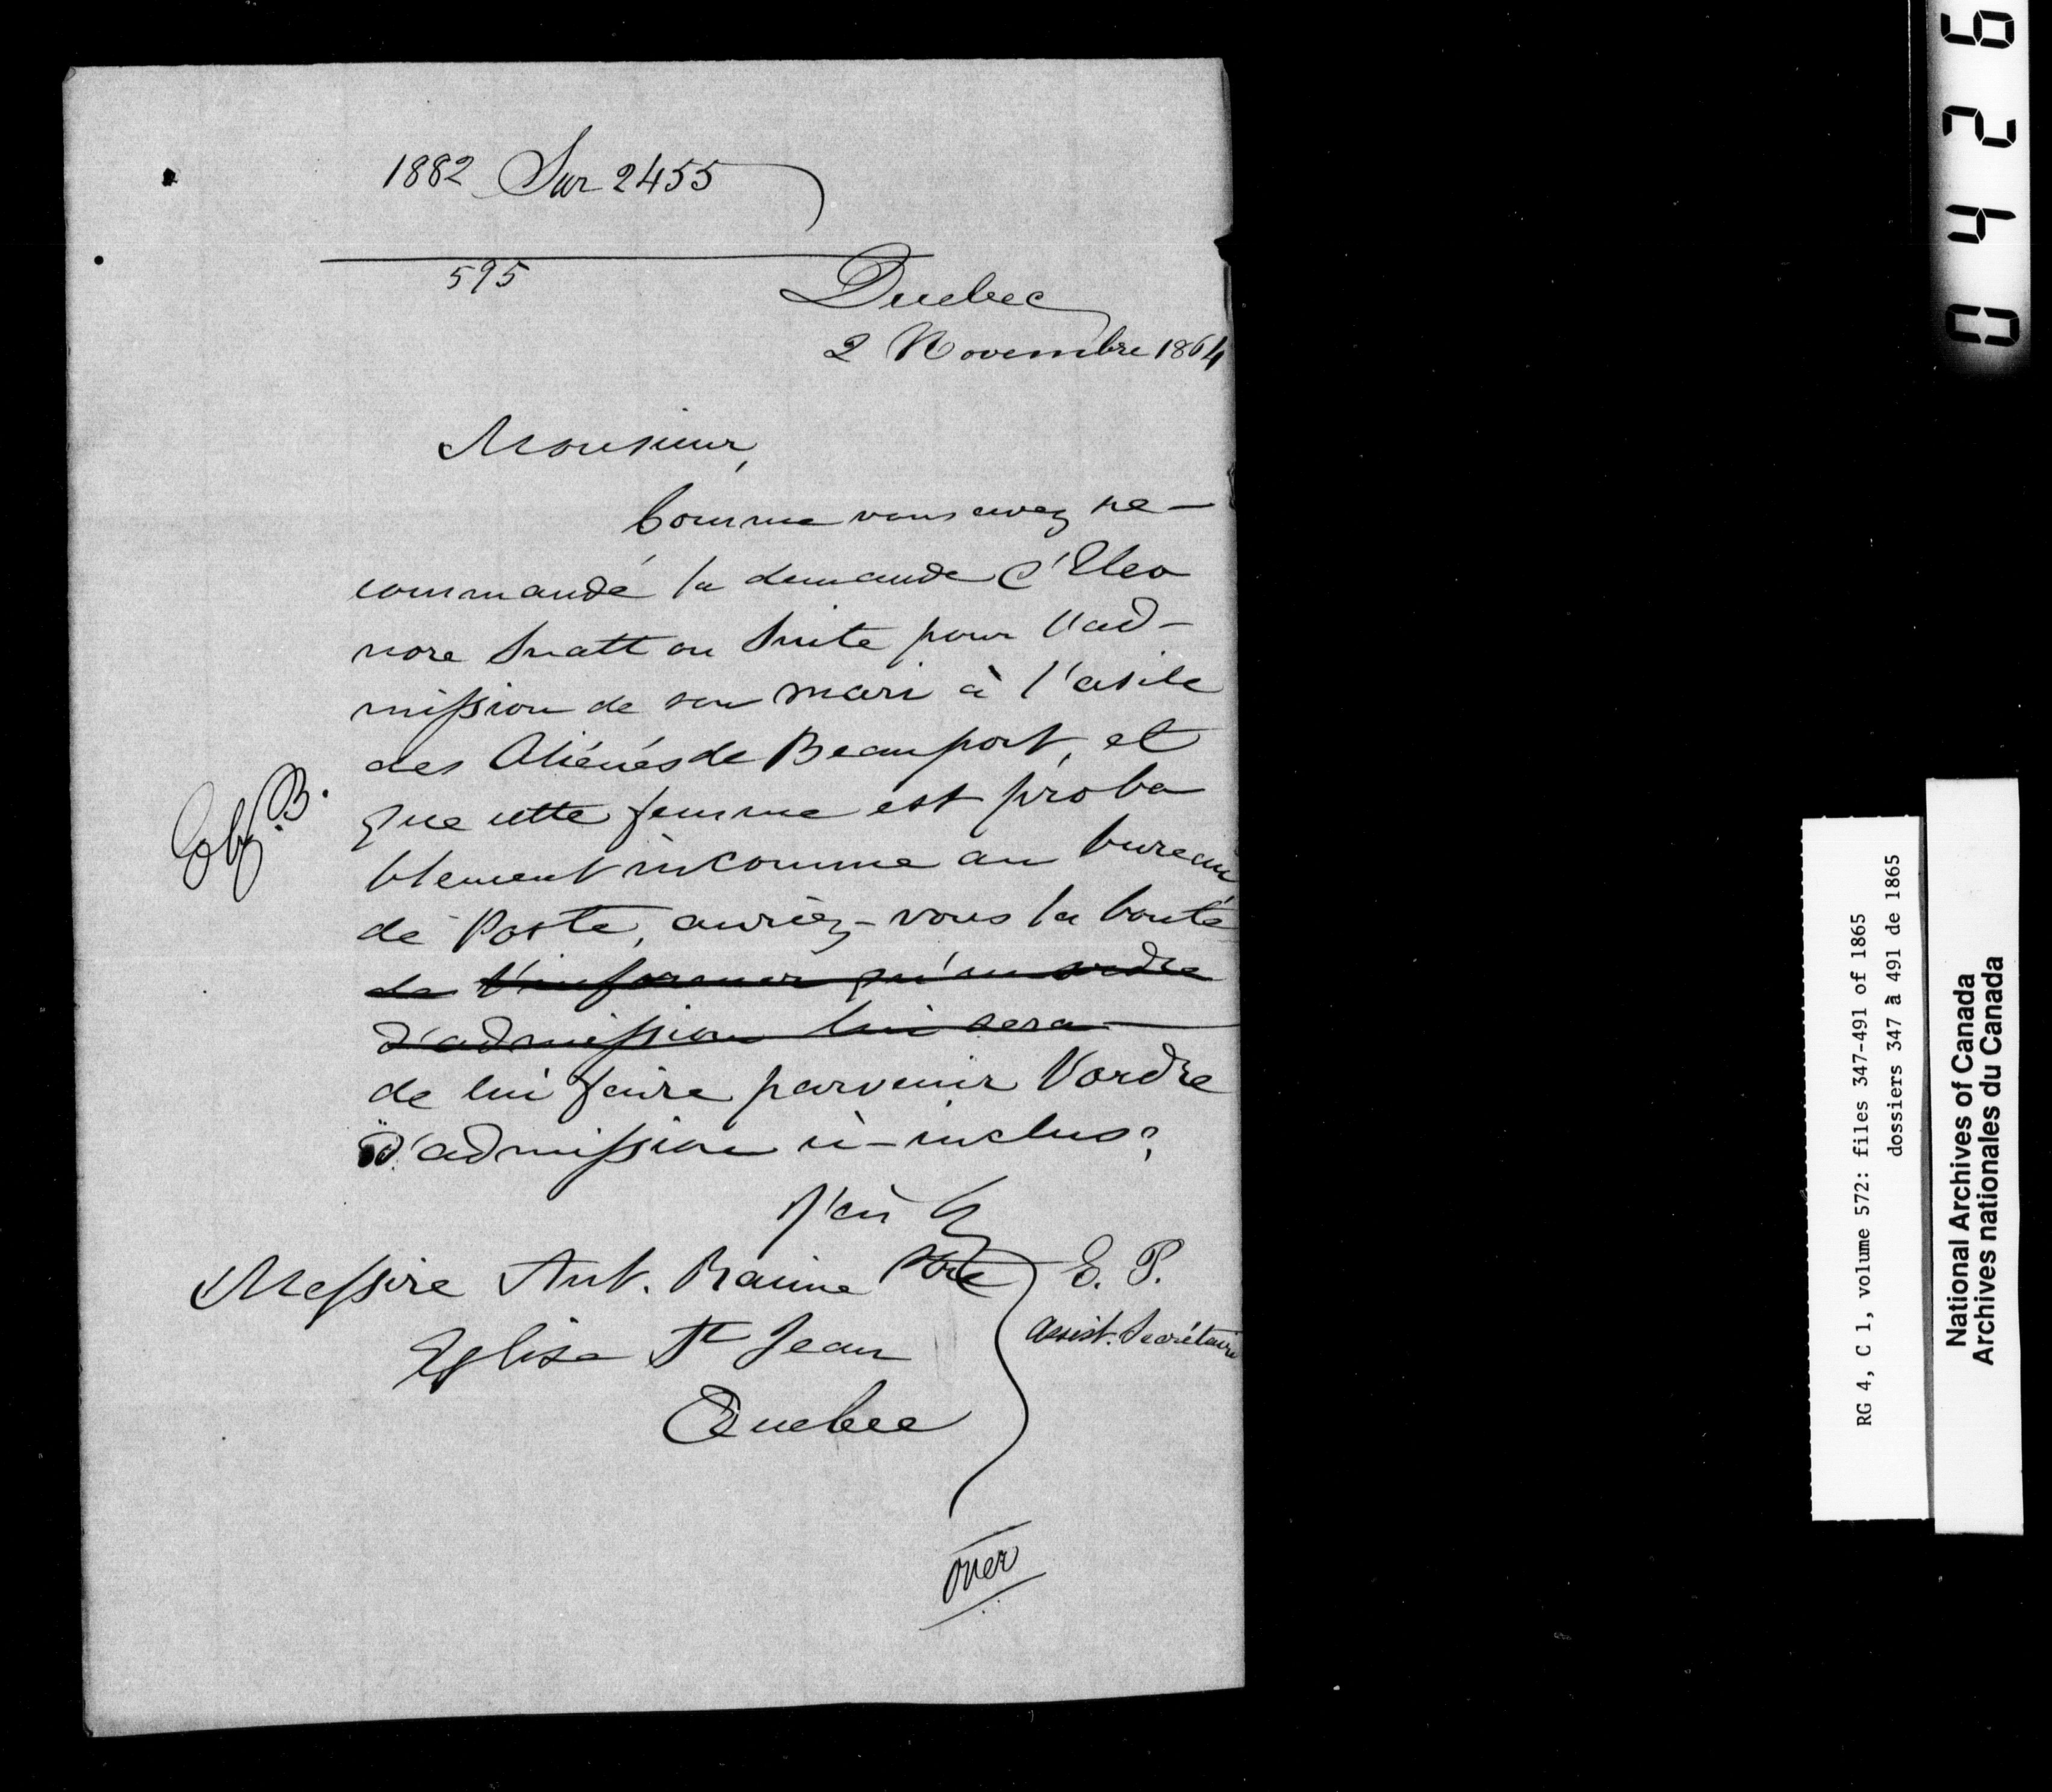 1882 Sur 2455
595
Quebec
2 Novembre 1864
Monsieur,
Comme vous avez re-
commandé la demande d'Eleo
nore Snatt ou Smite pour l'ad-
mission de son mari à l'asile
des Aliénés de Beauport, et
que cette femme est proba
blement inconnue au bureau
de Poste, auriez-vous la bonté
de l'informer qu'un ordre
d'admission lui sera
de lui faire parvenir l'ordre
d'admission ci-inclus?
J'ai
Messire Ant. Racine Ptre
E. P.
Assist. Secrétaire
Eglise St Jean
Quebec
over
B.
0426
RG 4, C 1, volume 572: files 347-491 of 1865
dossiers 347 à 491 de 1865
National Archives of Canada
Archives nationales du Canada